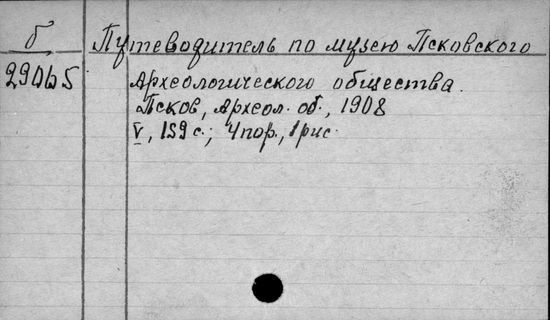 б Путеводитель по музею Псковского
29065 Археологического общества.
Псков, Археол. об., 1908
V, 159 с.; 4 пор., 1 рис.